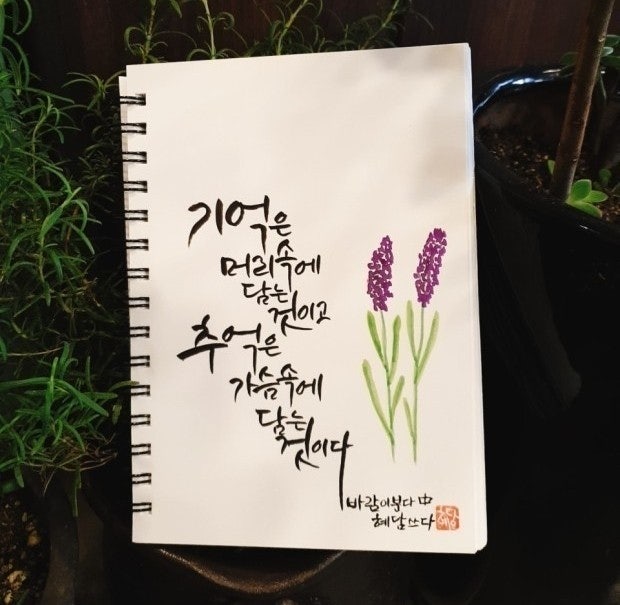 기억은
머리속에
담는
것이고
추억은
가슴속에
담는
것이다
바람이분다 中
혜담쓰다